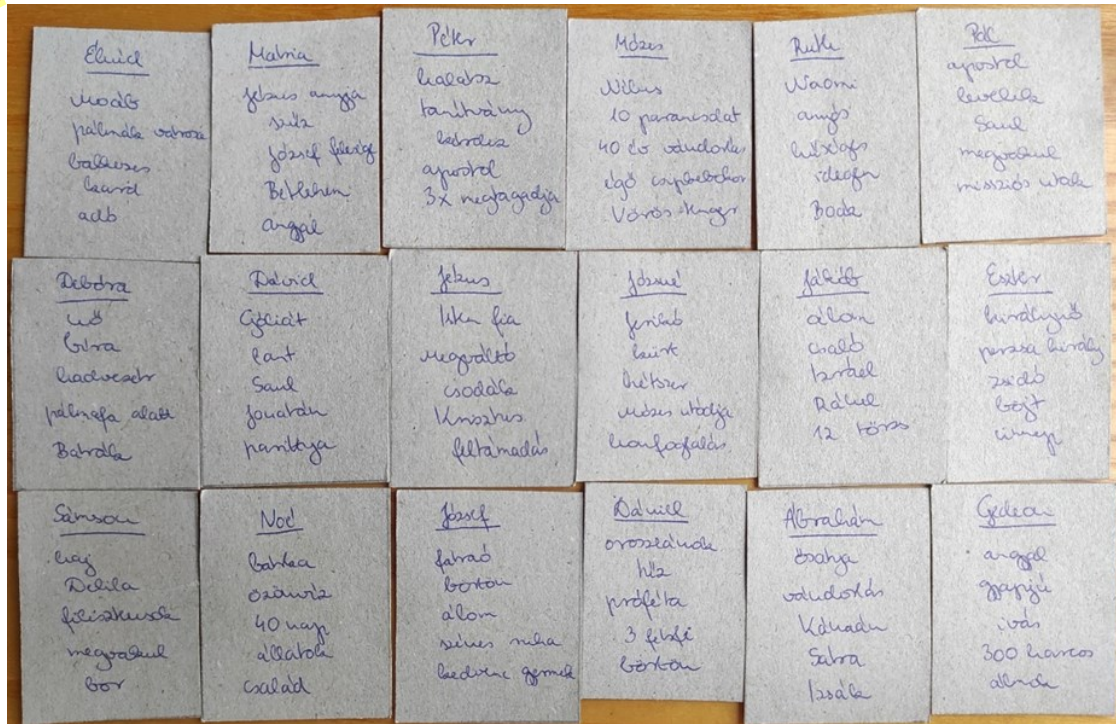 Éhúd
Moáb
pálmák városa
balkezes
kard
Mária
Jézus anyja
szűz
József felesége
Betlehem
angyal
Péter
halász
tanítvány
kérdez
apostol
3x megtagadja
Mózes
Nílus
10 parancsolat
40 év vándorlás
égő csipkebokor
Vörös-tenger
Ruth
Naomi
anyós
hűséges
idegen
Boáz
Pál
apostol
levelek
Saul
megvakul
missziós utak
Debóra
nő
bíra
hadvezér
pálmafa alatt
Bárák
Dávid
Góliát
lant
Saul
Jonatán
parittya
Jézus
Isten fia
Megváltó
csodák
Krisztus
feltámadás
Józsué
Jerikó
kürt
hétszer
Mózes utódja
honfoglalás
Jákób
álom
csaló
Izrael
Ráhel
12 törzs
Eszter
királynő
perzsa király
zsidó
böjt
ünnep
Sámson
haj
Delila
filiszteusok
megvakul
bor
Noé
bárka
özönvíz
40 nap
állatok
család
József
fáraó
börtön
álom
színes ruha
kedvenc gyermek
Dániel
oroszlánok
próféta
3 férfi
börtön
Ábrahám
ősatya
vándorlás
Kánaán
Sára
Izsák
Gedeon
angyal
gyapjú
ivás
300 harcos